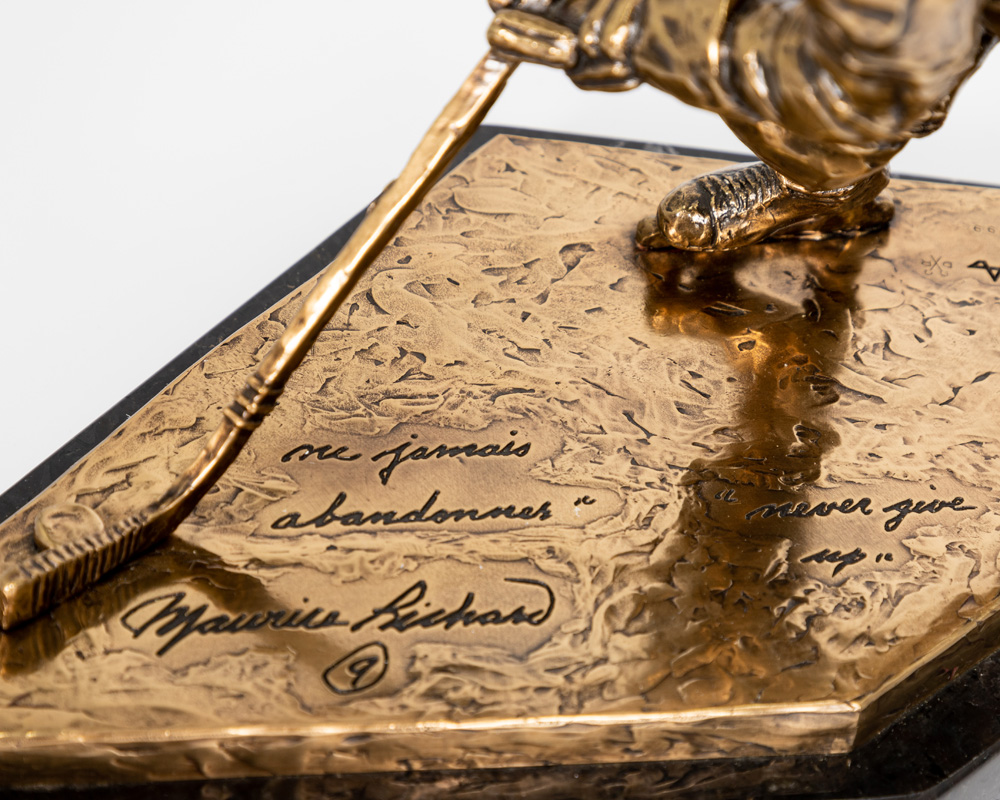 ne jamais
abandonner"
"never give
up"
Maurice Richard
9